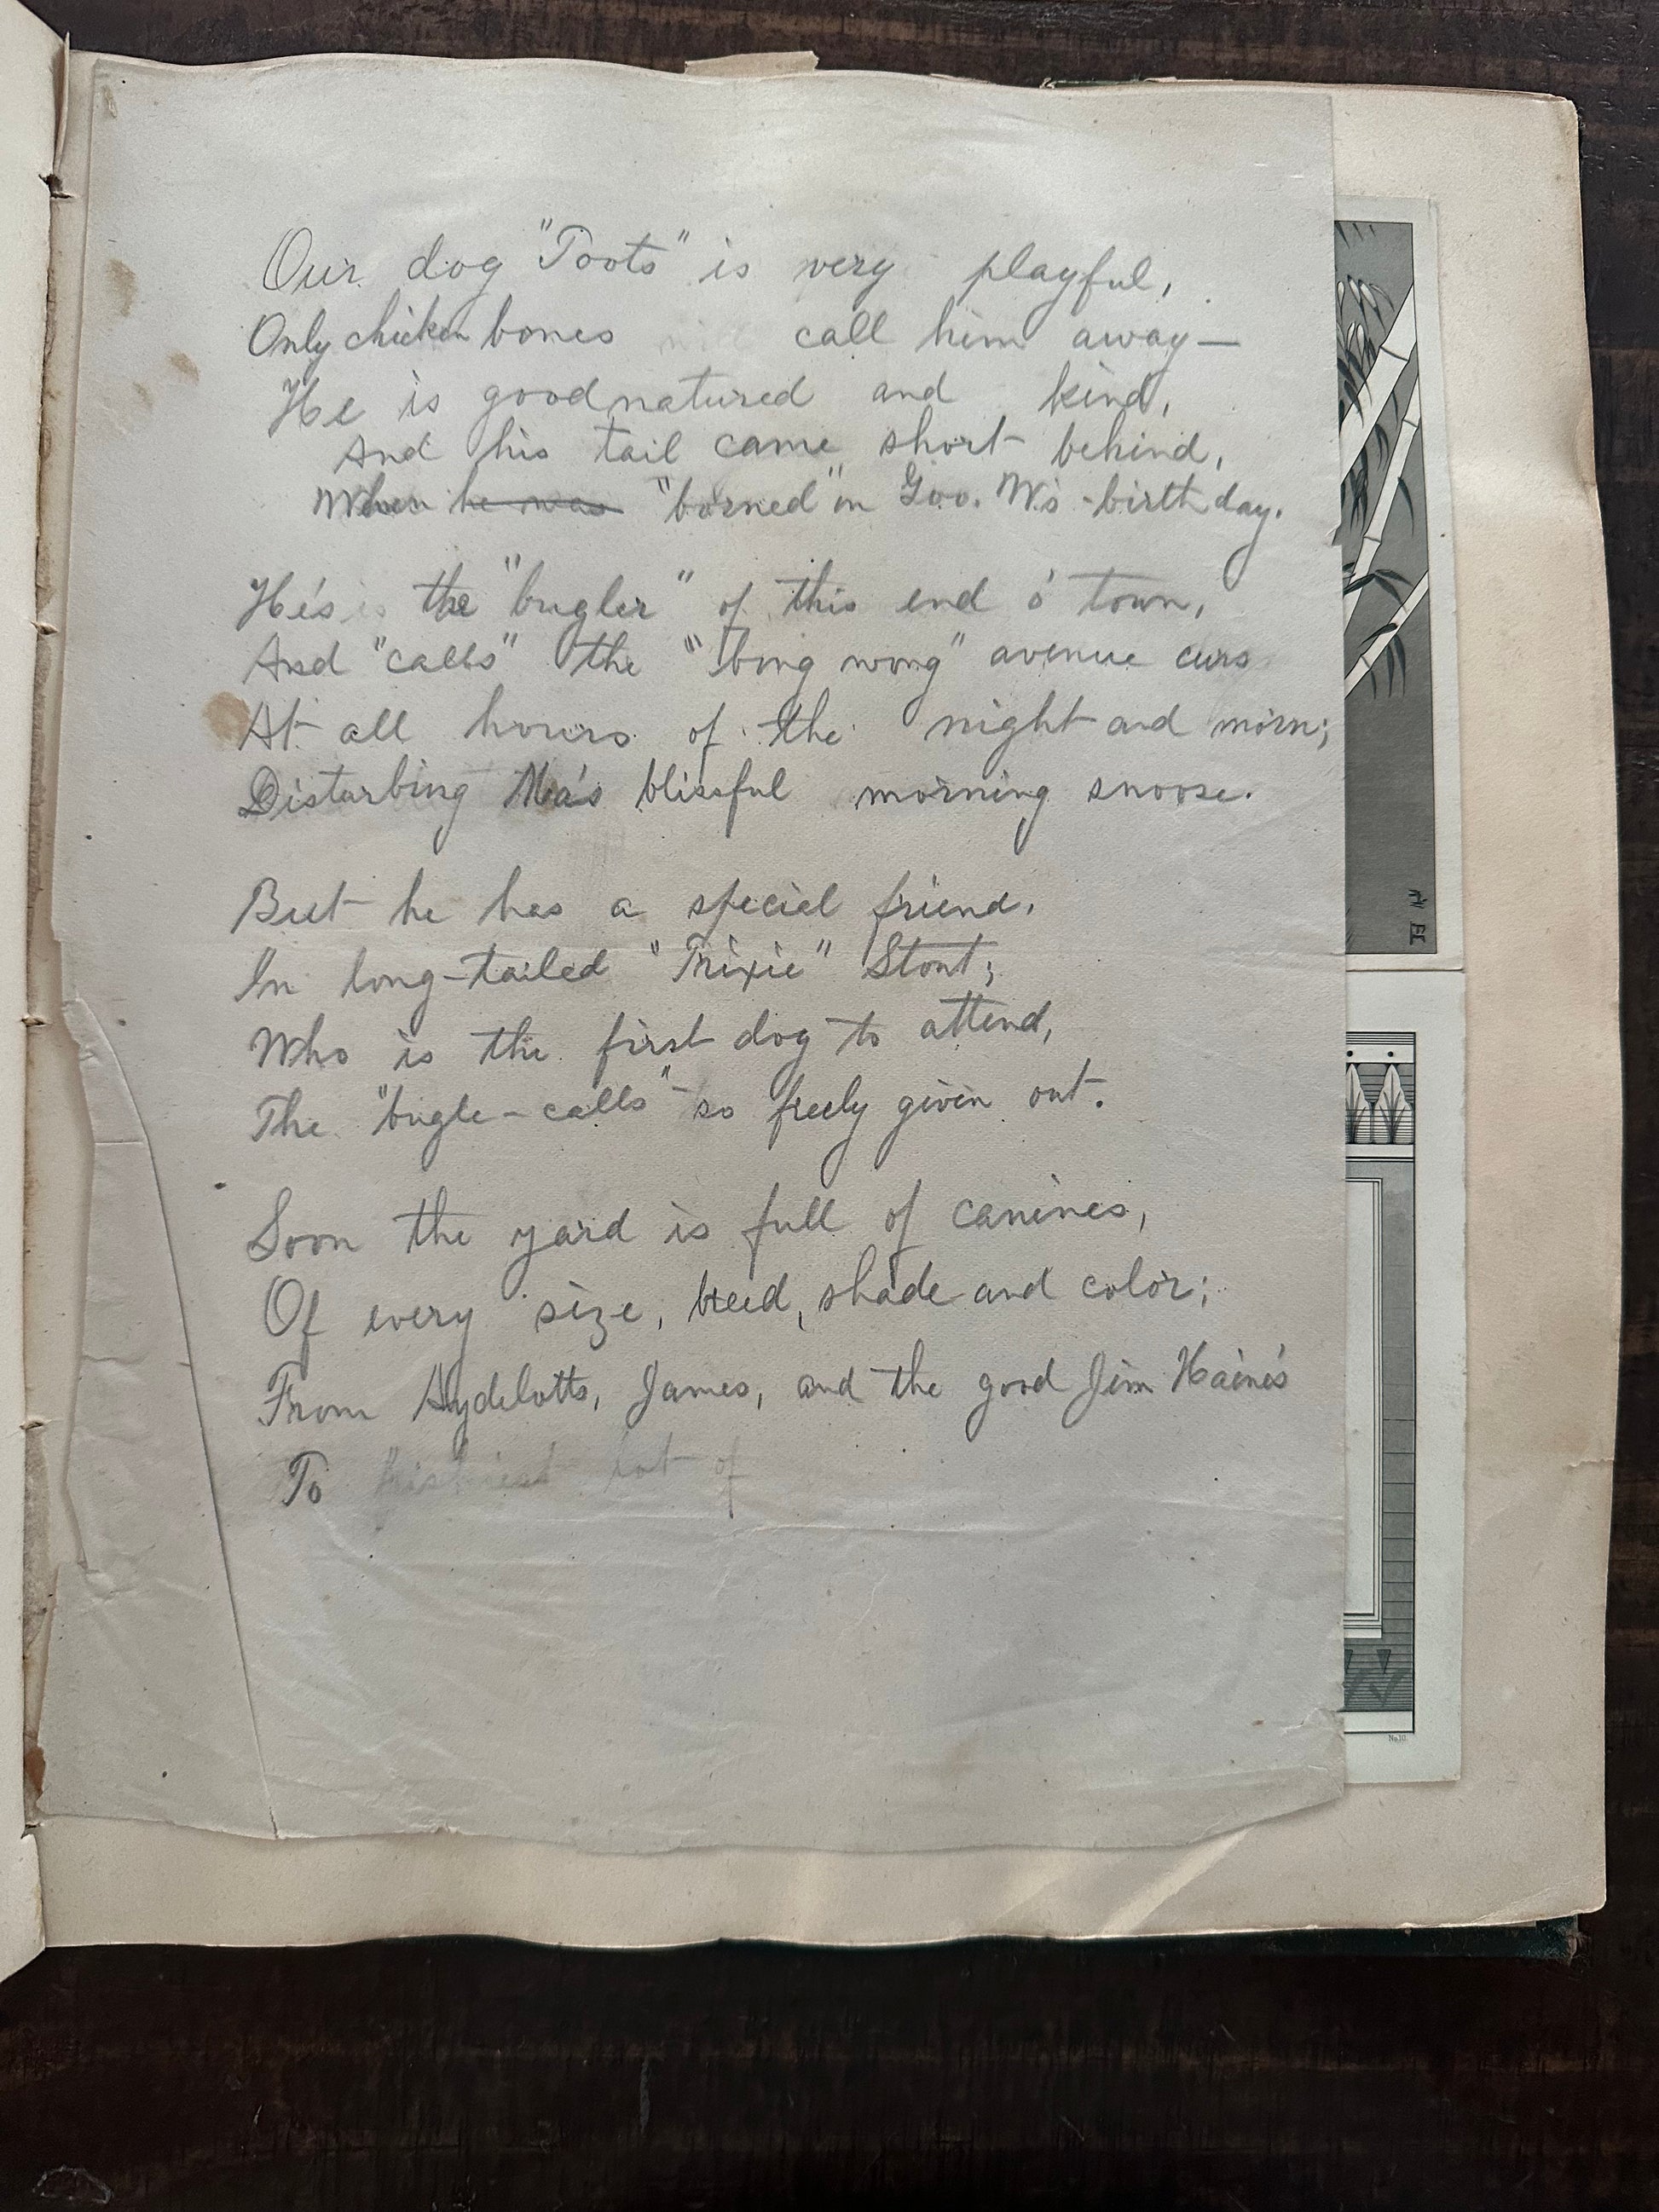 Our dog "Toots" is very playful,
Only chicken bones will call him away—
He is goodnatured and kind,
And his tail came short behind,
When he was "borned" on Geo. W's-birthday.
He's is the "bugler" of this end o' town,
And "calls" the "bong wong" avenue curs
At all hours of the night and morn;
Disturbing Ma's blissful morning snooze.
But he has a special friend,
In long-tailed "Trixie" Stout;
Who is the first dog to attend,
The "bugle-calls" so freely given out.
Soon the yard is full of canines,
Of every size, breed, shade and color;
From Aydelotts, James, and the good Jim Haines
To lot of
No.10.